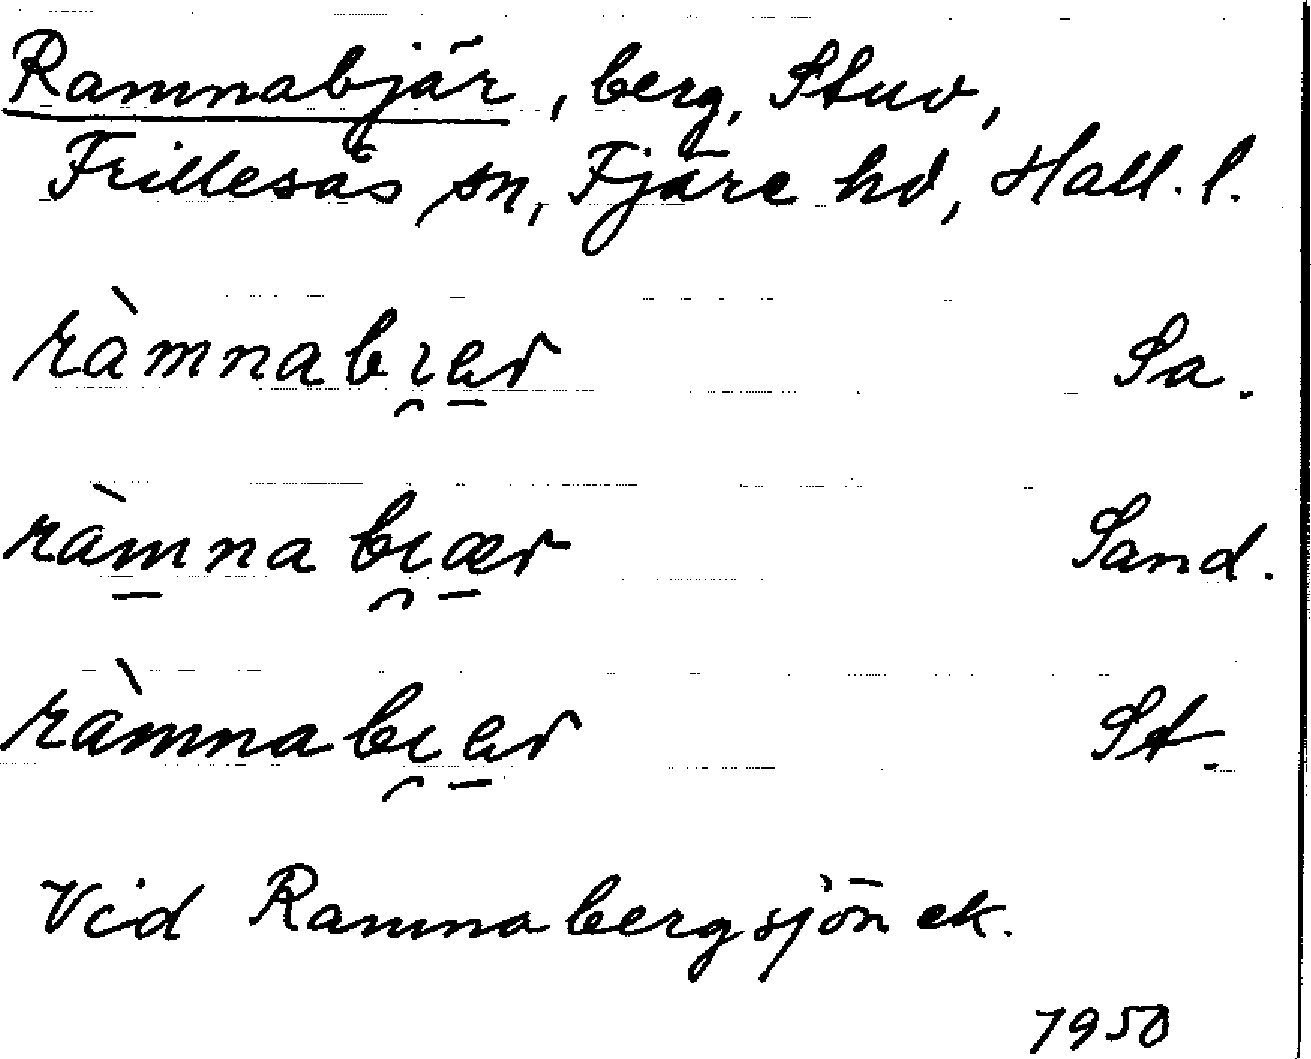 Ramnabjär, berg, Stuv,
Frillesås sn, Fjäre hd, Hall. l.
ràmnabı̯ær Sa.
ràmnabı̯ær Sand.
ràmnabı̯ær St.
Vid Ramnabergsjön ek.
1950